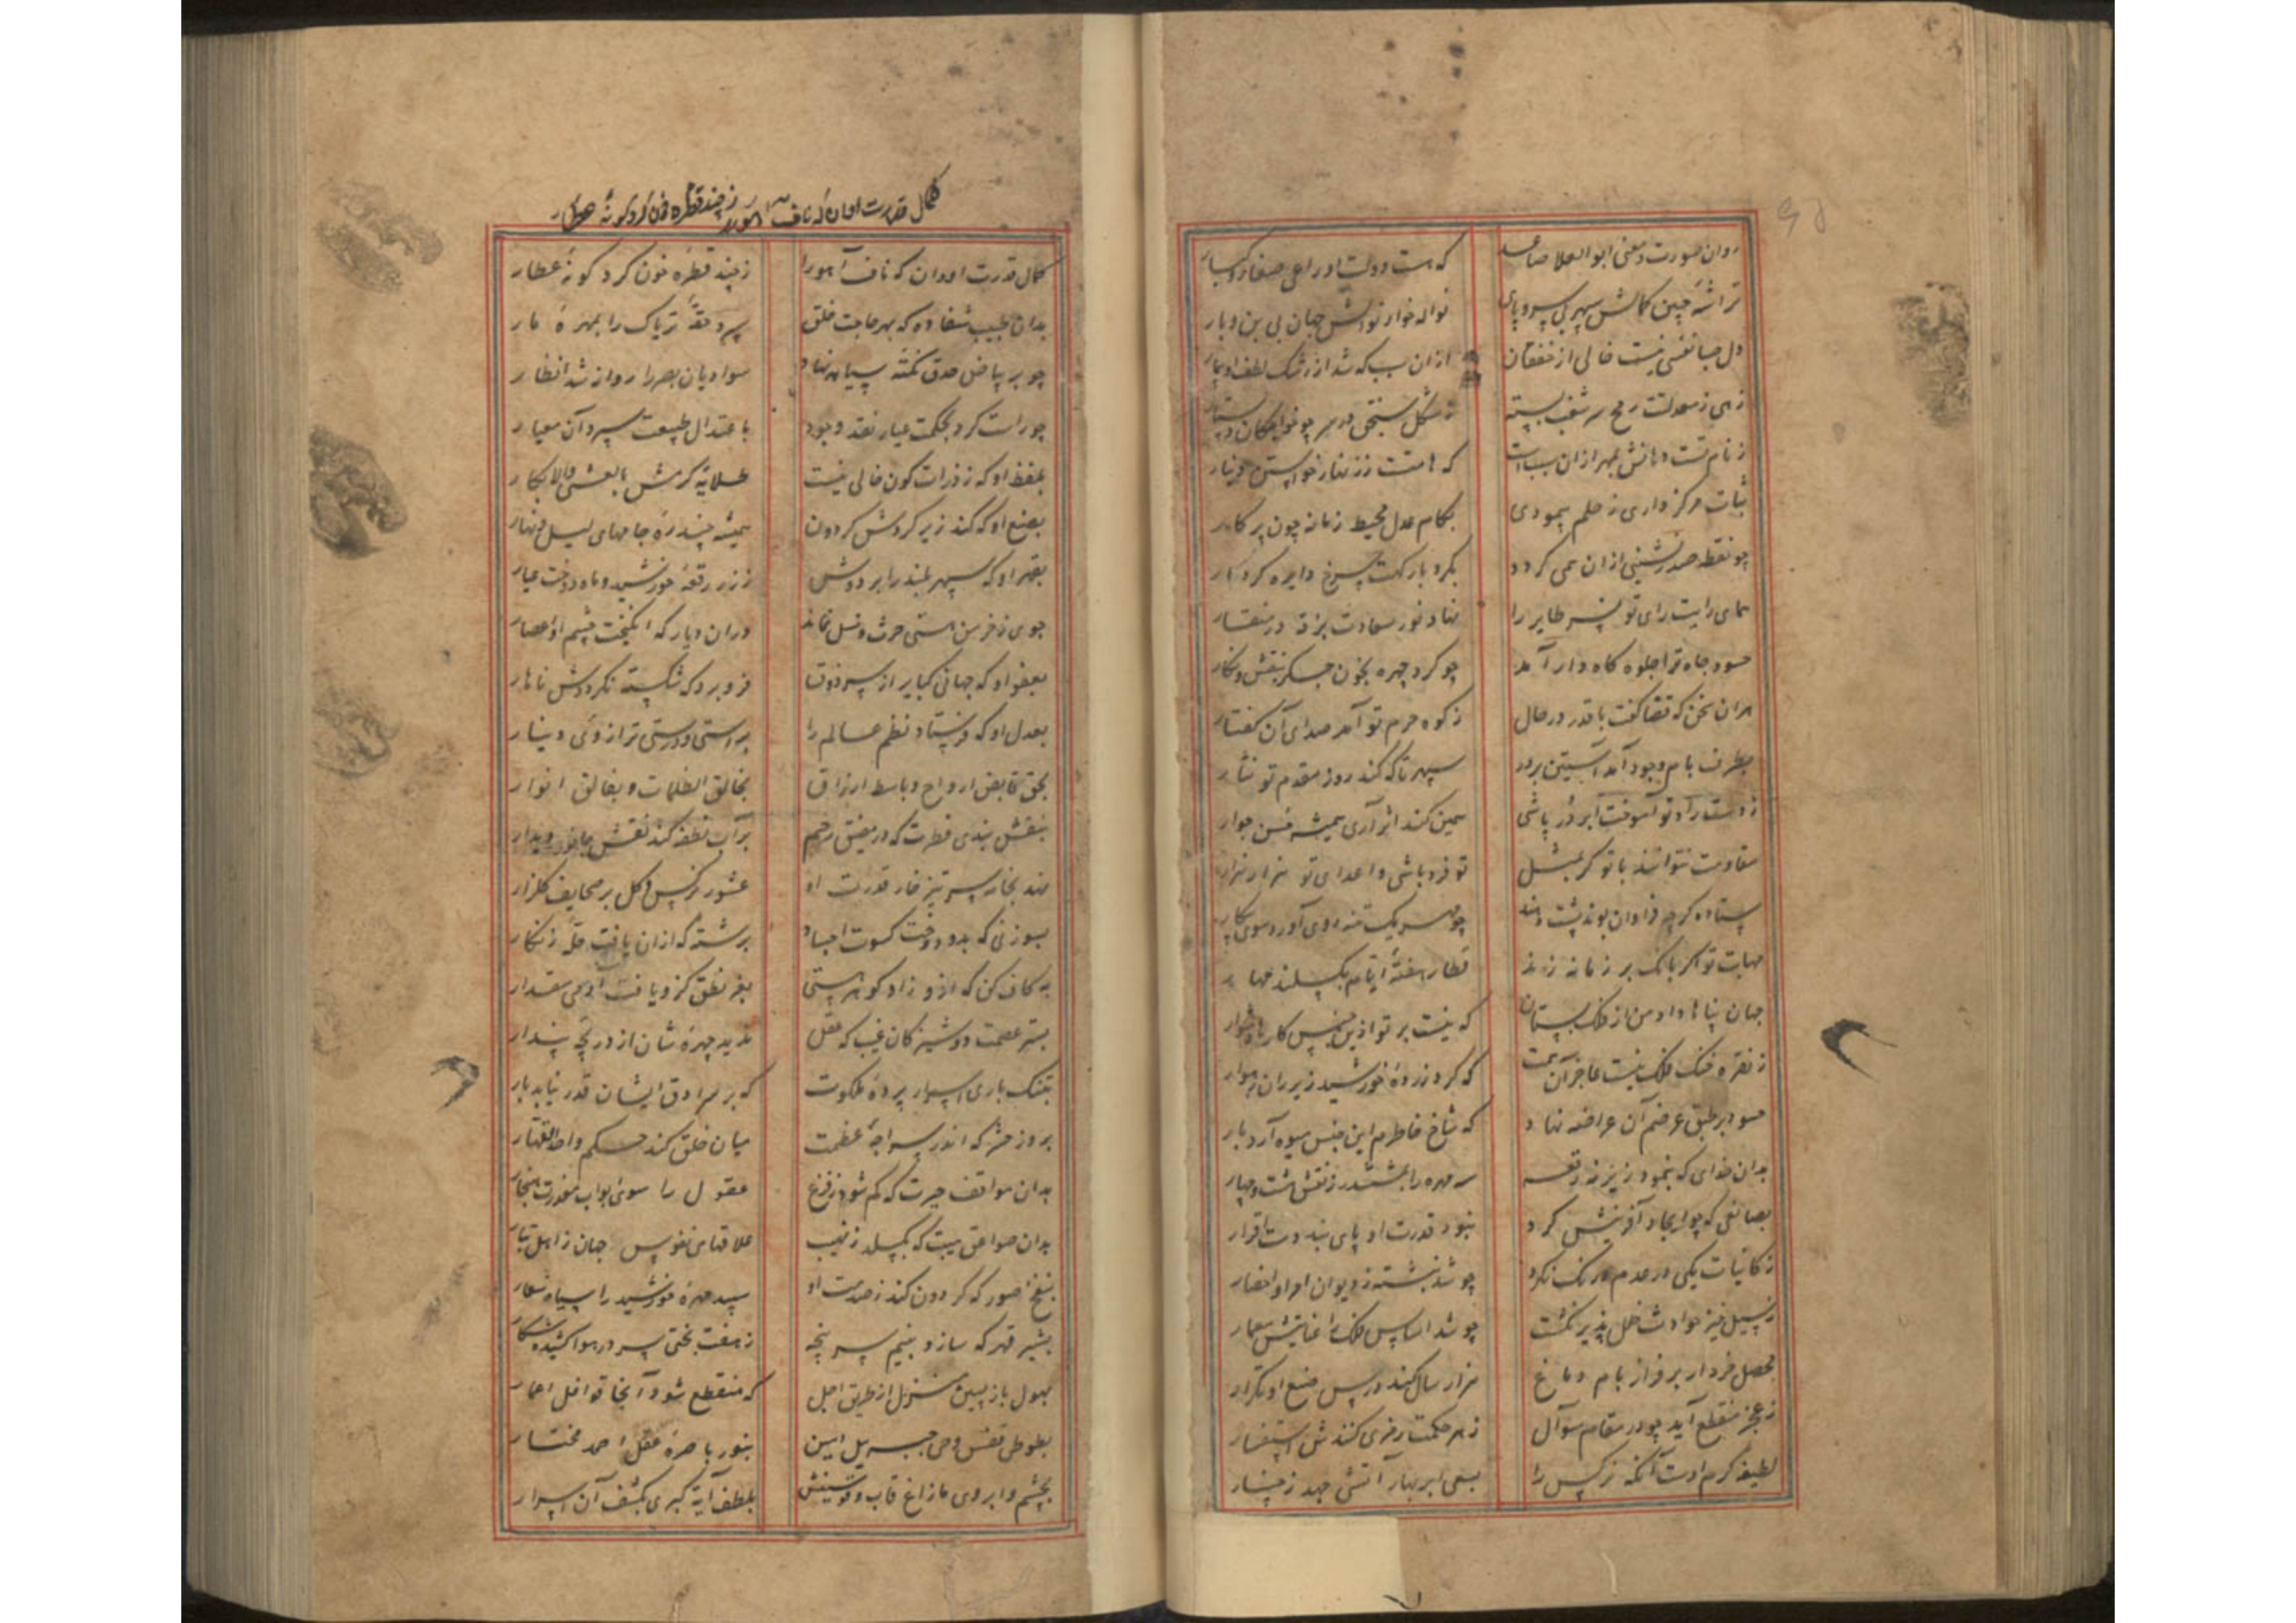 روان صورت و معنی ابوالعلا صاعد
که هست دولت او راعی صغار و کبار
تراشه چین کمالش سپهر بی سر و پای
نواله خوار نوالش جهان بی بن و بار
دل صبا نفسی نیست خالی از خفقان
ازان سبب که شد از رشک لطف او بیمار
زهی ز معدلتت رمح سر شغب بسته
ز نام تست دهانش بمهر ازان سبب است
که هامتت زر
ثبات مرکز داری ز حلم پیمودی
بکام عدل محیط زمانه چون پرگار
چو نقطه صدرنشینی ازان همی گردد
بگرد بارگهت چرخ دایره کردار
همای رایت رای تو نسر طایر را
نهاد نور سعادت بزقه در منقار
حسود جاه ترا جلوه گاه دار آمد
چو کرد چهره بخون جگر بنقش و نگار
هران سخن که قضا گفت با قدر در حال
ز کوه حزم تو آمد صدای آن گفتار
بطرف بام وجود آمد آستین بر در
سپهر تا که کند روز مقدم تو نثار
ز دست راد تو آموخت ابر در پاشی
همین کند اثر آری همیشه حسن جوار
مقاومت نتوانند با تو گر بمثل
تو فرد باشی و اعدای تو هزار هزار
ستاره گرچه فراوان بوند پشت دهند
چو مهر یک تنه روی آورد سوی پیکار
مهابت تو اگر بانگ بر زمانه زند
قطار هفتهٔ ایام بگسلند مهار
جهان پناها داد من از فلک بستان
که نیست بر تو ازین جنس کارها دشوار
ز نقره خنگ فلک نیست عاجز آن همت
که کرد زردهٔ خورشید زیر ران رهوار
حسود بر طبق عرضم آن عراضه نهاد
که شاخ خاطرم این جنس میوه آرد بار
بدان خدای که بنمود زیر نه رقعه
سه مهره را بششدر ز نقش هشت و چهار
بصانعی که چو ایجاد آفرینش کرد
نبود قدرت او پای بند دست افزار
ز کائنات یکی در عدم درنگ نکرد
چو شد نبشته ز دیوان امر او احضار
ز سیل خیز حوادث خلل پذیر نگشت
چو شد اساس فلک را عنایتش معمار
محصل خرد ار بر فراز بام دماغ
هزار سال کند درس صنع او تکرار
ز عجز منقطع آید چو در مقام سوآل
ز هر حکمت رمزی کنندش استفسار
لطیفه کرم اوست آنکه نرگس را
بسعی ابر بهار آتشی جهد ز چنار
کمال قدرت او دان که ناف آهو را ز چند قطره خون کرد کونه عطار
کمال قدرت او دان که ناف آهو را
ز چند قطره خون کرد کونهٔ عطار
بدان طبیب شفا ده که بهر حاجت خلق
سپرد حقهٔ تریاک را بمهرهٔ مار
چو بر بیاض حدق نکتهٔ سیاه نهاد
سوادیان بصر را روان شد انظار
چو راست کرد بحکمت عیار نقد وجود
باعتدال طبیعت سپرد آن معیار
بلفظ او که ز ذرات کون خالی نیست
طلایهٔ کرمش بالعشی والابکار
بصنع او که کند زیر گردش گردون
همیشه چندرهٔ جامهای لیل و نهار
بقهر او که سپهر بلند را بر دوش
ز زر رقعهٔ خورشید و ماه دوخت غیار
جوی ز خرمن هستی حرث و نسل نماند
دران دیار که انگیخت خشم او اعصار
بعفو او که جهانی کبایر از سر ذوق
فرو برد که شکسته نگرددش ناهار
بعدل او که فرستاد نظم عالم را
براستی و درستی ترازوئی دینار
بحق قابض ارواح و باسط ارزاق
بخالق الظلمات و بفالق انوار
بنقش بندی فطرت که در مضیق رحم
بر آب نطفه کند نقش جانور دیدار
نهد بخامه سر تیز خار قدرت او
عشور نرگس و گل بر صحایف گلزار
بسوزنی که بدو دوخت کسوت اجساد
برشته که ازان یافت حله زنگار
به کاف کن که ازو زاد گوهر هستی
بغر نطق کزو یافت آدمی مقدار
بستر عصمت دوشیزگان غیب که عقل
ندید چهرهٔ شان از دریچهٔ پندار
بتنگ باری اسرار پردهٔ ملکوت
که بر سرادق ایشان قدر نیابد بار
بروز حشر که اندر سراچهٔ عظمت
میان خلق کند حکم واحد القهار
بدان مواقف حیرت که گم شود ز فزع
عقول را سوی ابواب معذرت هنجار
بدان صواعق هیبت که بگسلد ز نهیب
علاقهای نفوس جهان ز اهل تبار
بنفخ صور که گردون کند ز صدمت او
سپید مهرهٔ خورشید را سیاه شعار
بشیر قهر که سازد بنیم سر پنجه
ز هفت بختی سر در هوا کشیده شکار
بهول باز پسین منزل از طریق اجل
که منقطع شود آنجا قوافل اعمار
بطوطی قفس وحی جبرییل امین
بنور باصرهٔ عقل احمد مختار
بچشم و ابروی مازاغ قاب و قوسینش
بلطف آیه کبری بکشف آن اسرار